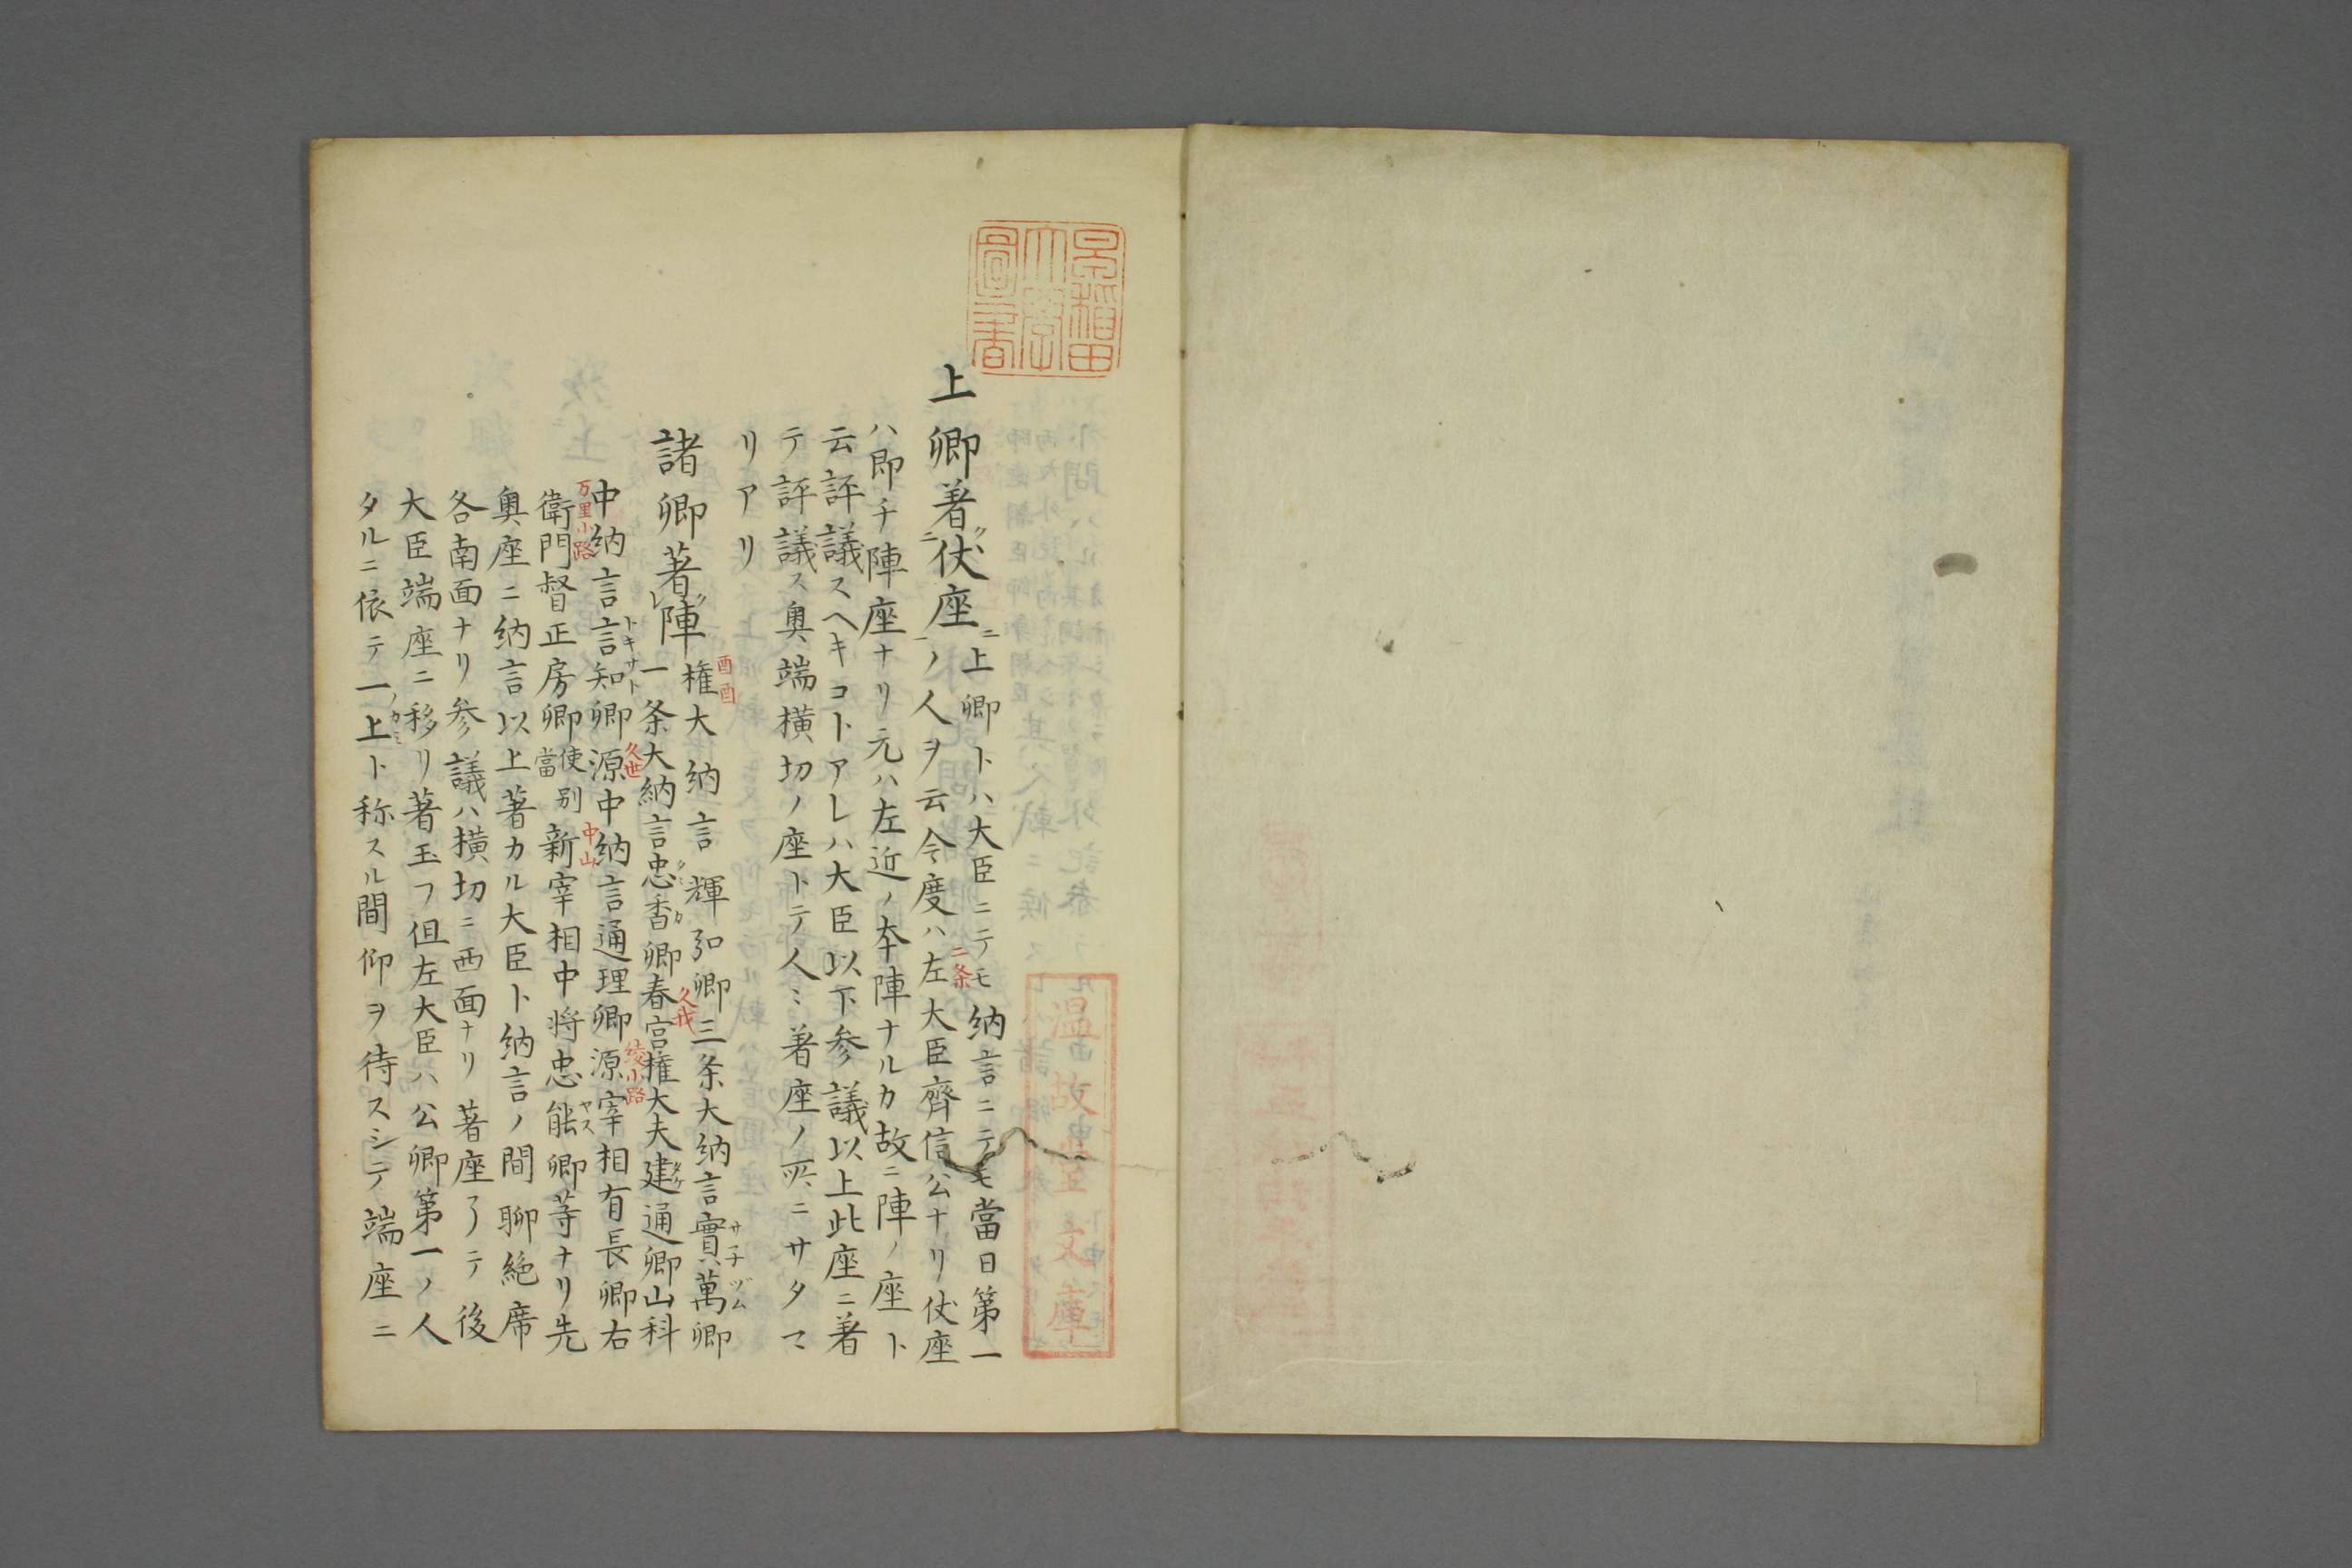 早稲田
大學
圖書
温故堂文庫
上卿著ク二仗座ニ一
上卿トハ大臣ニテモ納言ニテモ當日第一
ノ人ヲ云今度ハ左大臣齊信公ナリ仗座
二条
ハ即チ陣座ナリ元ハ左近ノ本陣ナルカ故ニ陣ノ座ト
云評議スヘキコトアレハ大臣以下参議以上此座ニ著
テ評議ス奥端横切ノ座トテ人〻著座ノ所ニサタマ
リアリ
諸卿著クレ陣
権大納言輝弘卿三条大納言實萬卿
酉酉
サネツム
一条大納言忠香卿春宮権大夫建通卿山科
タヾカ
久我
タケ
中納言言知卿源中納言通理卿源宰相有長卿右
トキサト
久世
綾小路
衛門督正房卿使別當新宰相中将忠能卿等ナリ先
万里小路
中山
ヤス
奥座ニ納言以上著カル大臣ト納言ノ間聊絶席
各南面ナリ参議ハ横切ニ西面ナリ著座了テ後
大臣端座ニ移リ著玉フ但左大臣ハ公卿第一ノ人
タルニ依テ一上ト称スル間仰ヲ待スシテ端座ニ
ノカミ